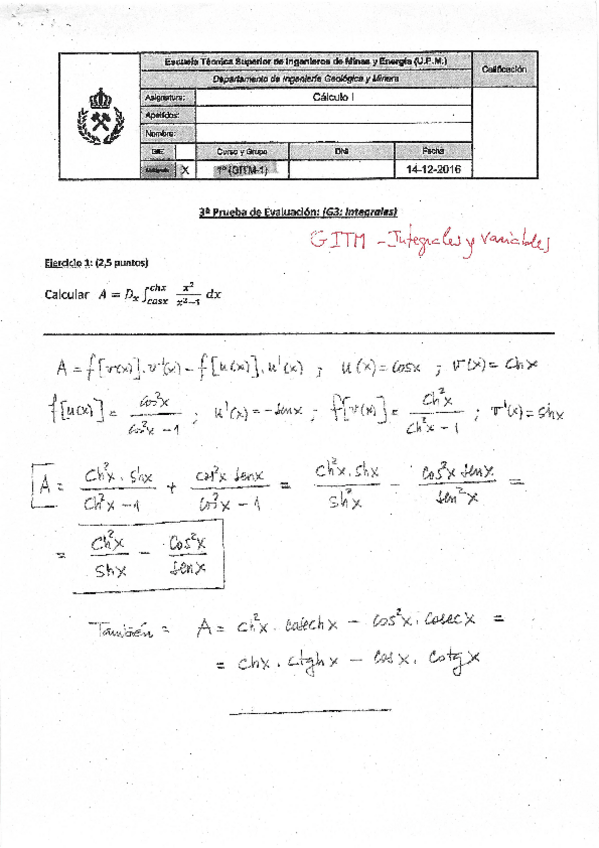 Escuela Técnica Superior de Ingenieros de Minas y Energía (U.P.M.)
Calificación
Departamento de Ingeniería Geológica y Minera
Asignatura: Cálculo I
Apellidos:
Nombre:
Curso y Grupo DNI Fecha
X 1º (GITM-1) 14-12-2016
3ª Prueba de Evaluación: (G3: Integrales)
GITM - Integrales y variables
Ejercicio 1: (2,5 puntos)
Calcular A = Dₓ ∫_{cosx}^{chx} x²/(x²−1) dx
A = f[v(x)].v'(x) − f[u(x)].u'(x) ; u(x) = cosx ; v(x) = chx
f[u(x)] = cos²x/(cos²x − 1) ; u'(x) = −senx ; f[v(x)] = ch²x/(ch²x − 1) ; v'(x) = shx
A = ch²x . shx/(ch²x − 1) + cos²x senx/(cos²x − 1) = ch²x . shx/sh²x − cos²x senx/sen²x =
= ch²x/shx − cos²x/senx
También = A = ch²x . cosechx − cos²x . cosecx =
= chx . ctghx − cosx . cotgx